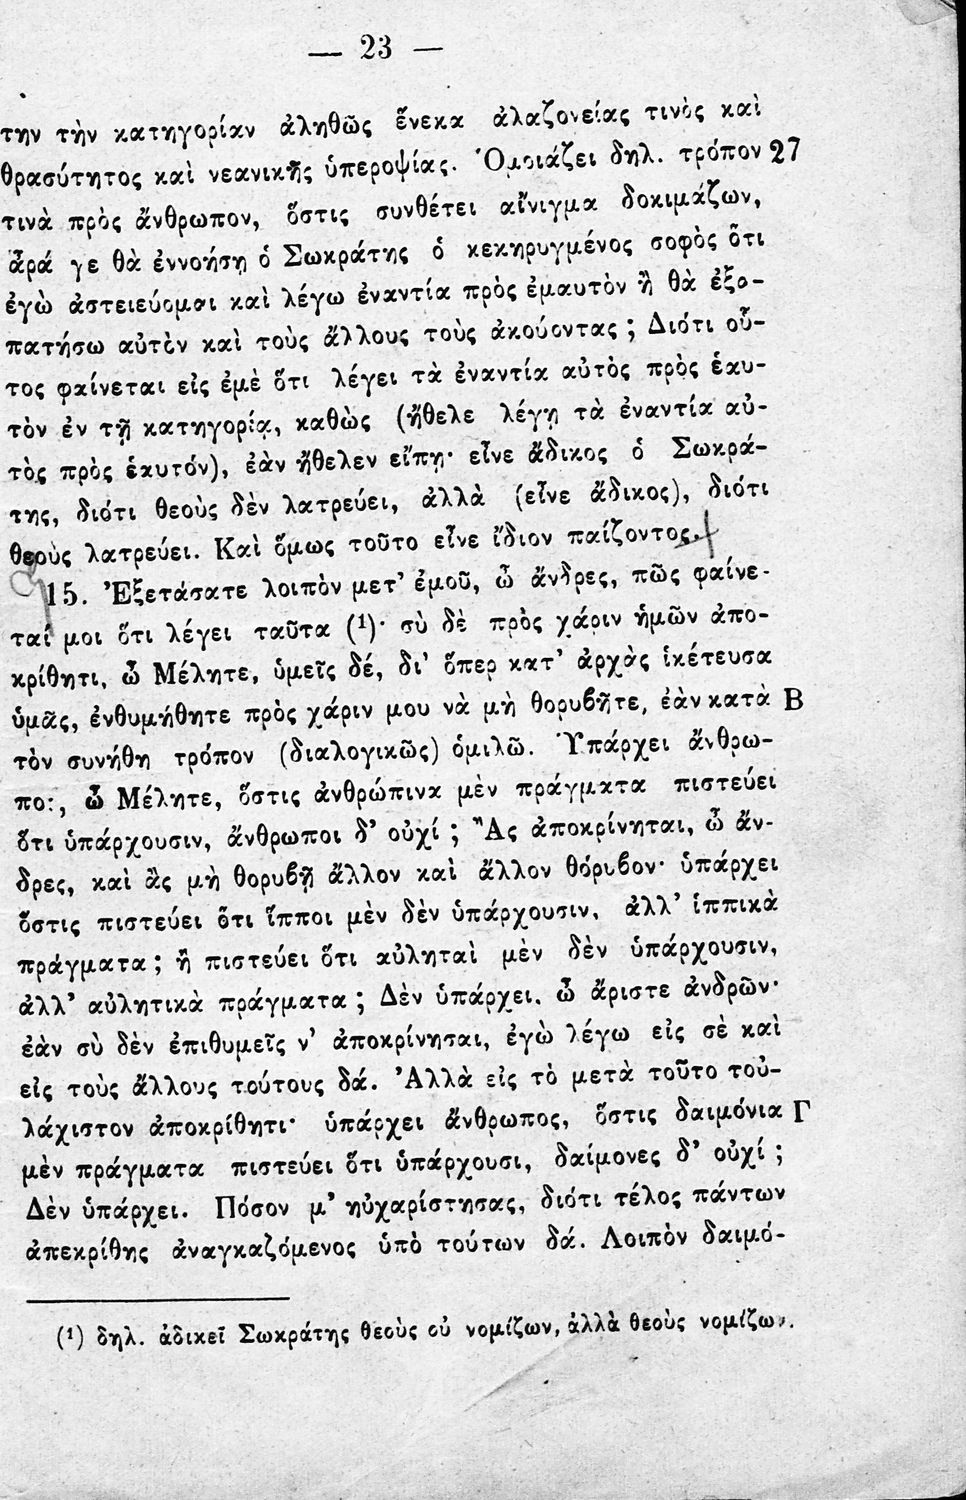 — 23 —
την τὴν κατηγορίαν ἀληθῶς ἕνεκα ἀλαζονείας τινὸς καὶ
θρασύτητος καὶ νεανικῆς ὑπεροψίας. Ὁμοιάζει δηλ. τρόπον 27
τινὰ πρὸς ἄνθρωπον, ὅστις συνθέτει αἴνιγμα δοκιμάζων,
ἆρά γε θὰ ἐννοήσῃ ὁ Σωκράτης ὁ κεκηρυγμένος σοφὸς ὅτι
ἐγὼ ἀστειεύομαι καὶ λέγω ἐναντία πρὸς ἐμαυτὸν ἢ θὰ ἐξα-
πατήσω αὐτὸν καὶ τοὺς ἄλλους τοὺς ἀκούοντας; Διότι οὗ-
τος φαίνεται εἰς ἐμὲ ὅτι λέγει τὰ ἐναντία αὐτὸς πρὸς ἑαυ-
τὸν ἐν τῇ κατηγορίᾳ, καθὼς (ἤθελε λέγῃ τὰ ἐναντία αὐ-
τὸς πρὸς ἑαυτόν), ἐὰν ἤθελεν εἴπῃ· εἶνε ἄδικος ὁ Σωκρά-
της, διότι θεοὺς δὲν λατρεύει, ἀλλὰ (εἶνε ἄδικος), διότι
θεοὺς λατρεύει. Καὶ ὅμως τοῦτο εἶνε ἴδιον παίζοντος.
15. Ἐξετάσατε λοιπὸν μετ' ἐμοῦ, ὦ ἄνδρες, πῶς φαίνε-
ταί μοι ὅτι λέγει ταῦτα (¹)· σὺ δὲ πρὸς χάριν ἡμῶν ἀπο-
κρίθητι, ὦ Μέλητε, ὑμεῖς δέ, δι' ὅπερ κατ' ἀρχὰς ἱκέτευσα
ὑμᾶς, ἐνθυμήθητε πρὸς χάριν μου νὰ μὴ θορυβῆτε, ἐὰν κατὰ Β
τὸν συνήθη τρόπον (διαλογικῶς) ὁμιλῶ. Ὑπάρχει ἄνθρω-
πος, ὦ Μέλητε, ὅστις ἀνθρώπινα μὲν πράγματα πιστεύει
ὅτι ὑπάρχουσιν, ἄνθρωποι δ' οὐχί; Ἂς ἀποκρίνηται, ὦ ἄν-
δρες, καὶ ἂς μὴ θορυβῇ ἄλλον καὶ ἄλλον θόρυβον· ὑπάρχει
ὅστις πιστεύει ὅτι ἵπποι μὲν δὲν ὑπάρχουσιν, ἀλλ' ἱππικὰ
πράγματα; ἢ πιστεύει ὅτι αὐληταὶ μὲν δὲν ὑπάρχουσιν,
ἀλλ' αὐλητικὰ πράγματα; Δὲν ὑπάρχει, ὦ ἄριστε ἀνδρῶν·
ἐὰν σὺ δὲν ἐπιθυμεῖς ν' ἀποκρίνησαι, ἐγὼ λέγω εἰς σὲ καὶ
εἰς τοὺς ἄλλους τούτους δά. Ἀλλὰ εἰς τὸ μετὰ τοῦτο τοὐ-
λάχιστον ἀποκρίθητι· ὑπάρχει ἄνθρωπος, ὅστις δαιμόνια Γ
μὲν πράγματα πιστεύει ὅτι ὑπάρχουσι, δαίμονες δ' οὐχί;
Δὲν ὑπάρχει. Πόσον μ' ηὐχαρίστησας, διότι τέλος πάντων
ἀπεκρίθης ἀναγκαζόμενος ὑπὸ τούτων δά. Λοιπὸν δαιμό-
(¹) δηλ. ἀδικεῖ Σωκράτης θεοὺς οὐ νομίζων, ἀλλὰ θεοὺς νομίζων.